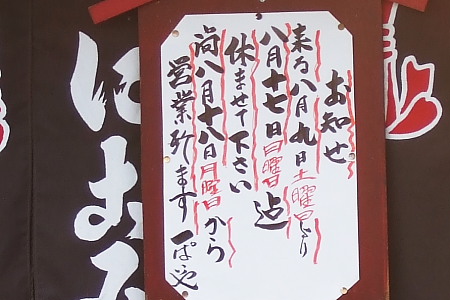 お知せ
来る八月九日土曜日より
八月十七日日曜日迠
休ませて下さい
尚八月十八日月曜日から
営業致します ぱや
にお